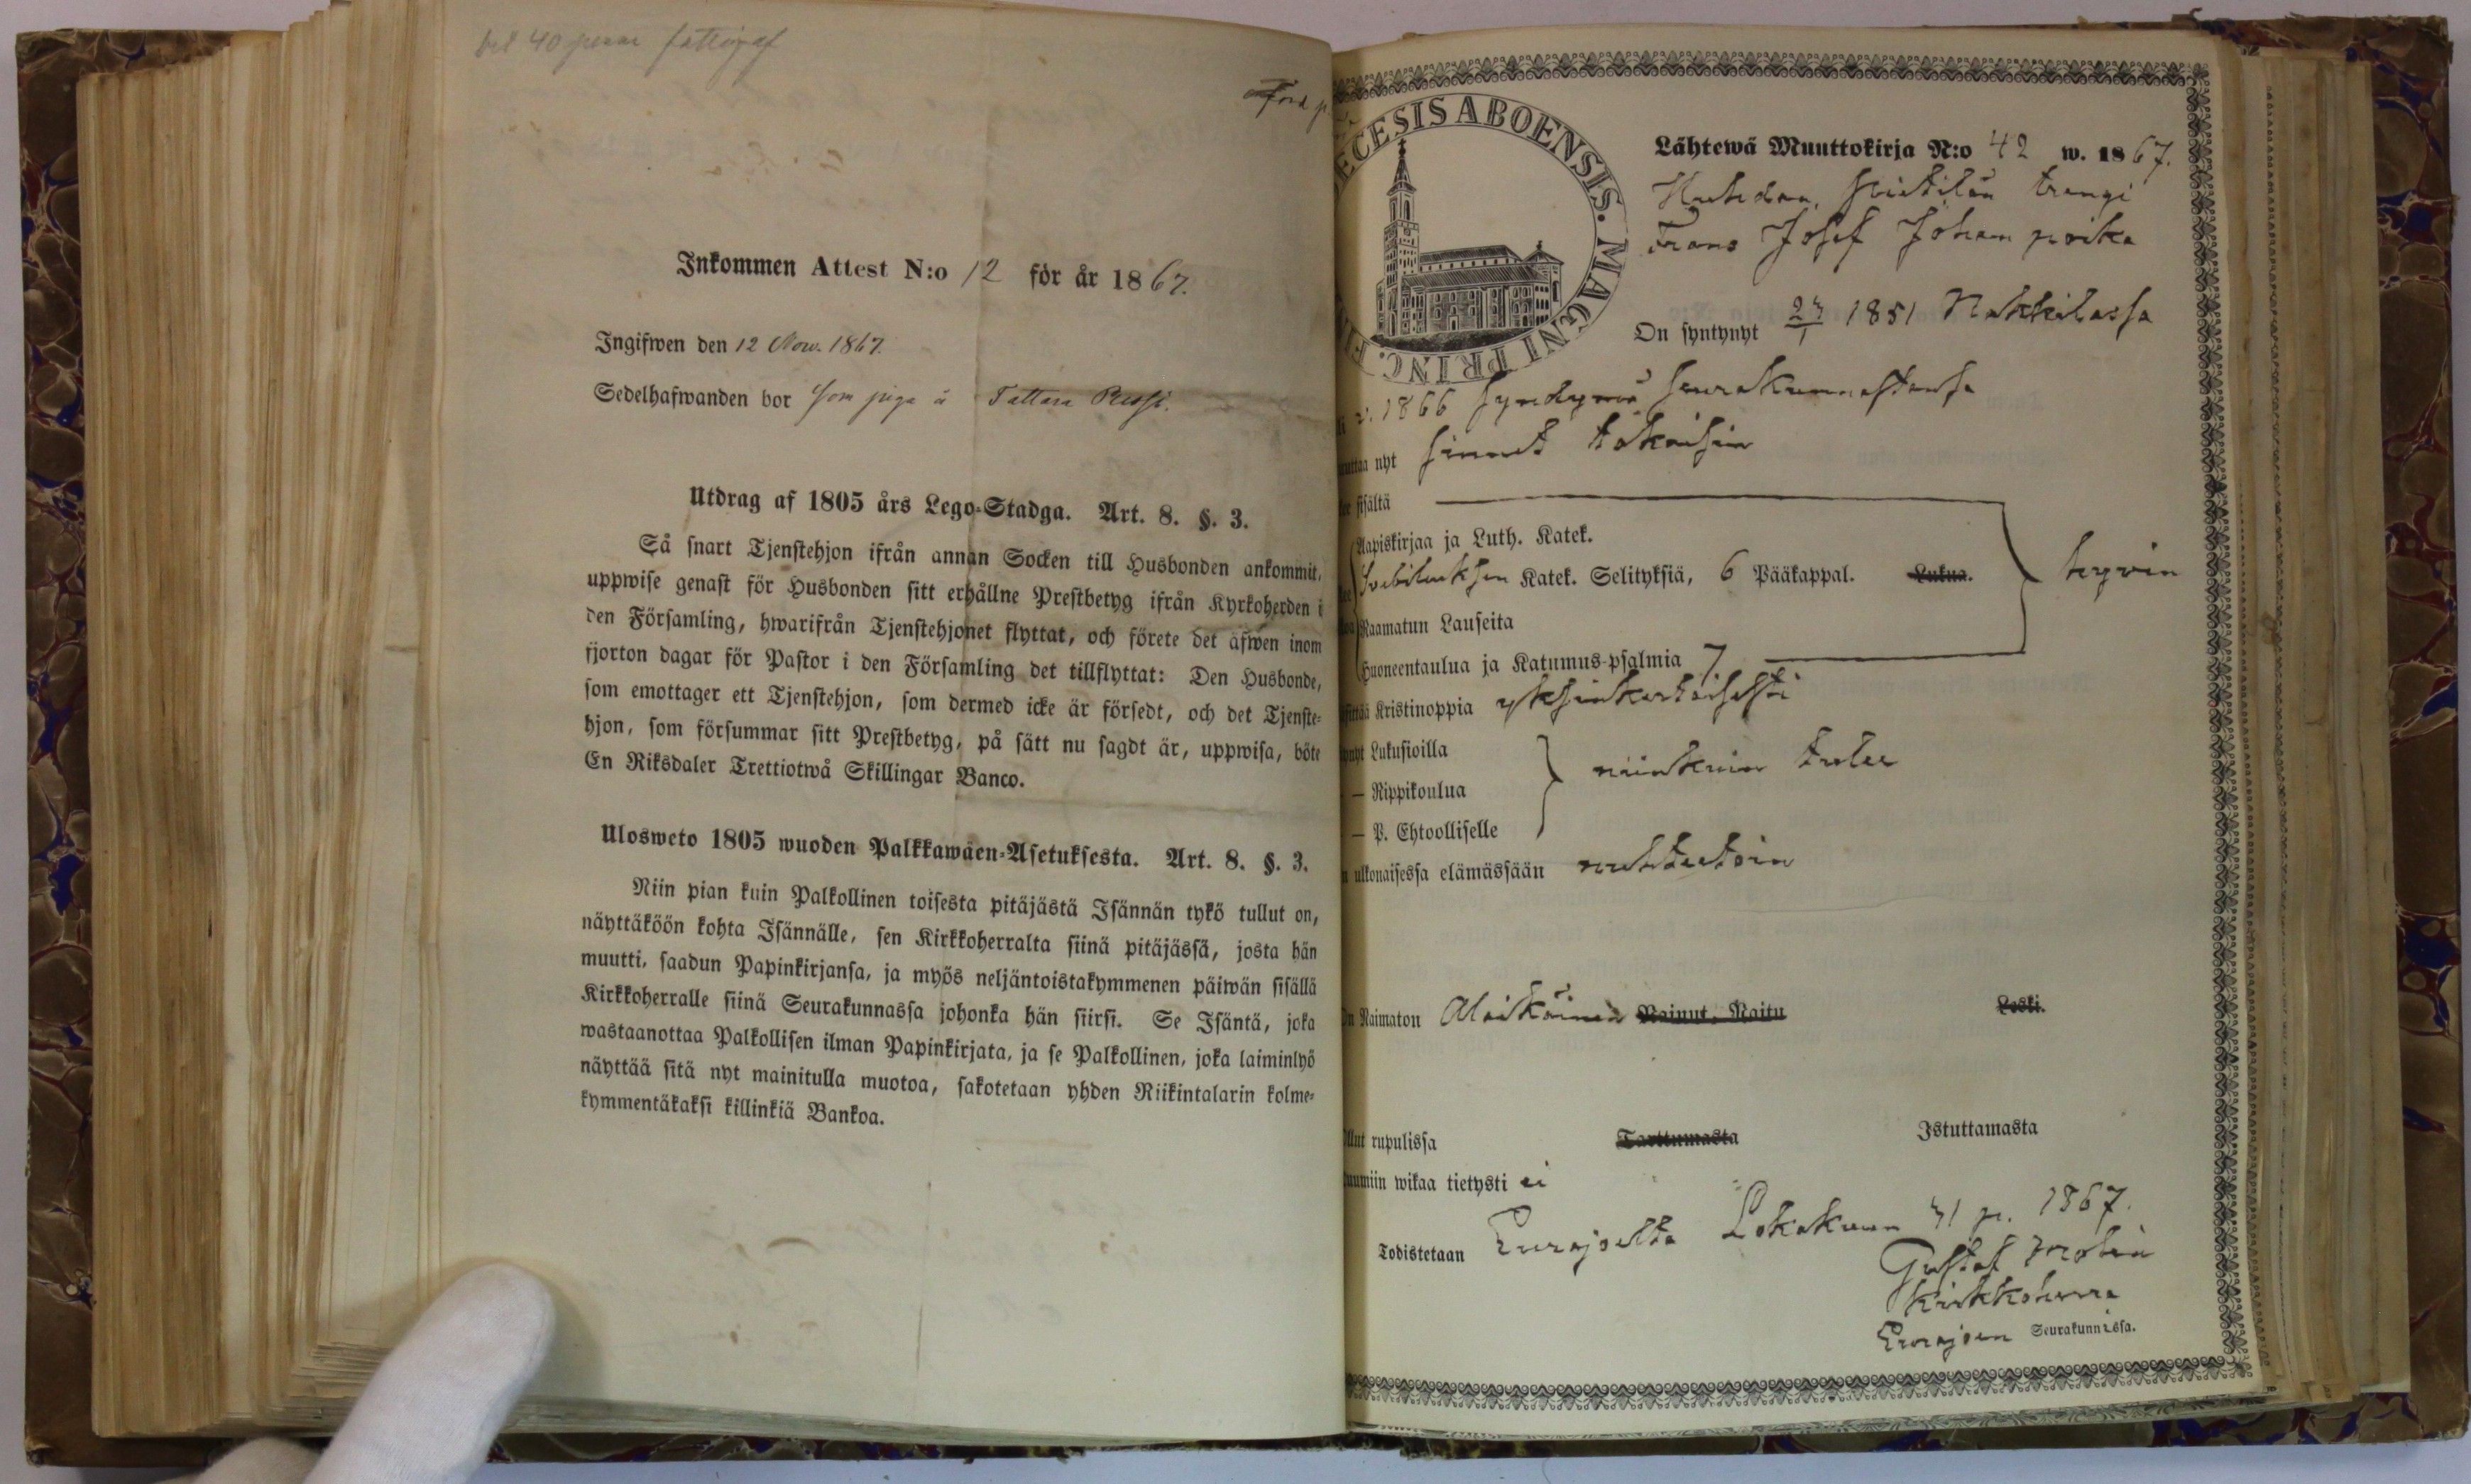 bet 40 penni fattigaf
Inkommen Attest N:o 12 för år 1867.
Ingifwen den 12 Nov. 1867.
Sedelhafwanden bor som piga å Tattara
Utdrag af 1805 års Lego-Stadga. Art. 8. §. 3.
Så snart Tjenstehjon ifrån annan Socken till Husbonden ankommit,
uppwise genast för Husbonden sitt erhållne Prestbetyg ifrån Kyrkoherden i
den Församling, hwarifrån Tjenstehjonet flyttat, och förete det äfwen inom
fjorton dagar för Pastor i den Församling det tillflyttat: Den Husbonde,
som emottager ett Tjenstehjon, som dermed icke är försedt, och det Tjenste-
hjon, som försummar sitt Prestbetyg, på sätt nu sagdt är, uppwisa, böte
En Riksdaler Trettiotwå Skillingar Banco.
Ulosweto 1805 wuoden Palkkawäen-Asetuksesta. Art. 8. §. 3.
Niin pian kuin Palkollinen toisesta pitäjästä Isännän tykö tullut on,
näyttäköön kohta Isännälle, sen Kirkkoherralta siinä pitäjässä, josta hän
muutti, saadun Papinkirjansa, ja myös neljäntoistakymmenen päiwän sisällä
Kirkkoherralle siinä Seurakunnassa johonka hän siirsi. Se Isäntä, joka
wastaanottaa Palkollisen ilman Papinkirjata, ja se Palkollinen, joka laiminlyö
näyttää sitä nyt mainitulla muotoa, sakotetaan yhden Riikintalarin kolme-
kymmentäkaksi killinkiä Bankoa.
ECESIS ABOENSIS. MAGNI PRINC. F
Lähtewä Muuttokirja N:o 42 w. 1867.
trengi
Frans Josef Johan poika
On syntynyt 1851 Nakkilassa
v. 1866 syndymä seurakunnastansa
nyt sinnet takaisin
sisältä
Aapiskirjaa ja Luth. Katek.
Svebiliuksen Katek. Selityksiä, 6 Pääkappal. Lukua. hyvin
Raamatun Lauseita
Huoneentaulua ja Katumus-psalmia 7
Kristinoppia yksinkertaisesti
Lukusioilla
— Rippikoulua niinkuin tulee
— P. Ehtoolliselle
ulkonaisessa elämässään nuhteetoin
Naimaton Alaikäinen Nainut. Naitu Leski.
rupulissa Tarttumasta Istuttamasta
wikaa tietysti ei
Todistetaan Eurajoelta Lokakuun 31 p. 1867.
Gustaf
Kirkkoherra
Eurajoen Seurakunnassa.